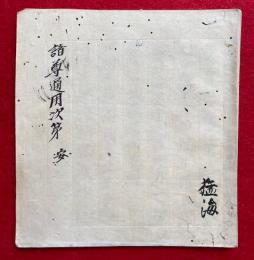 諸尊通用次第 安
猛海